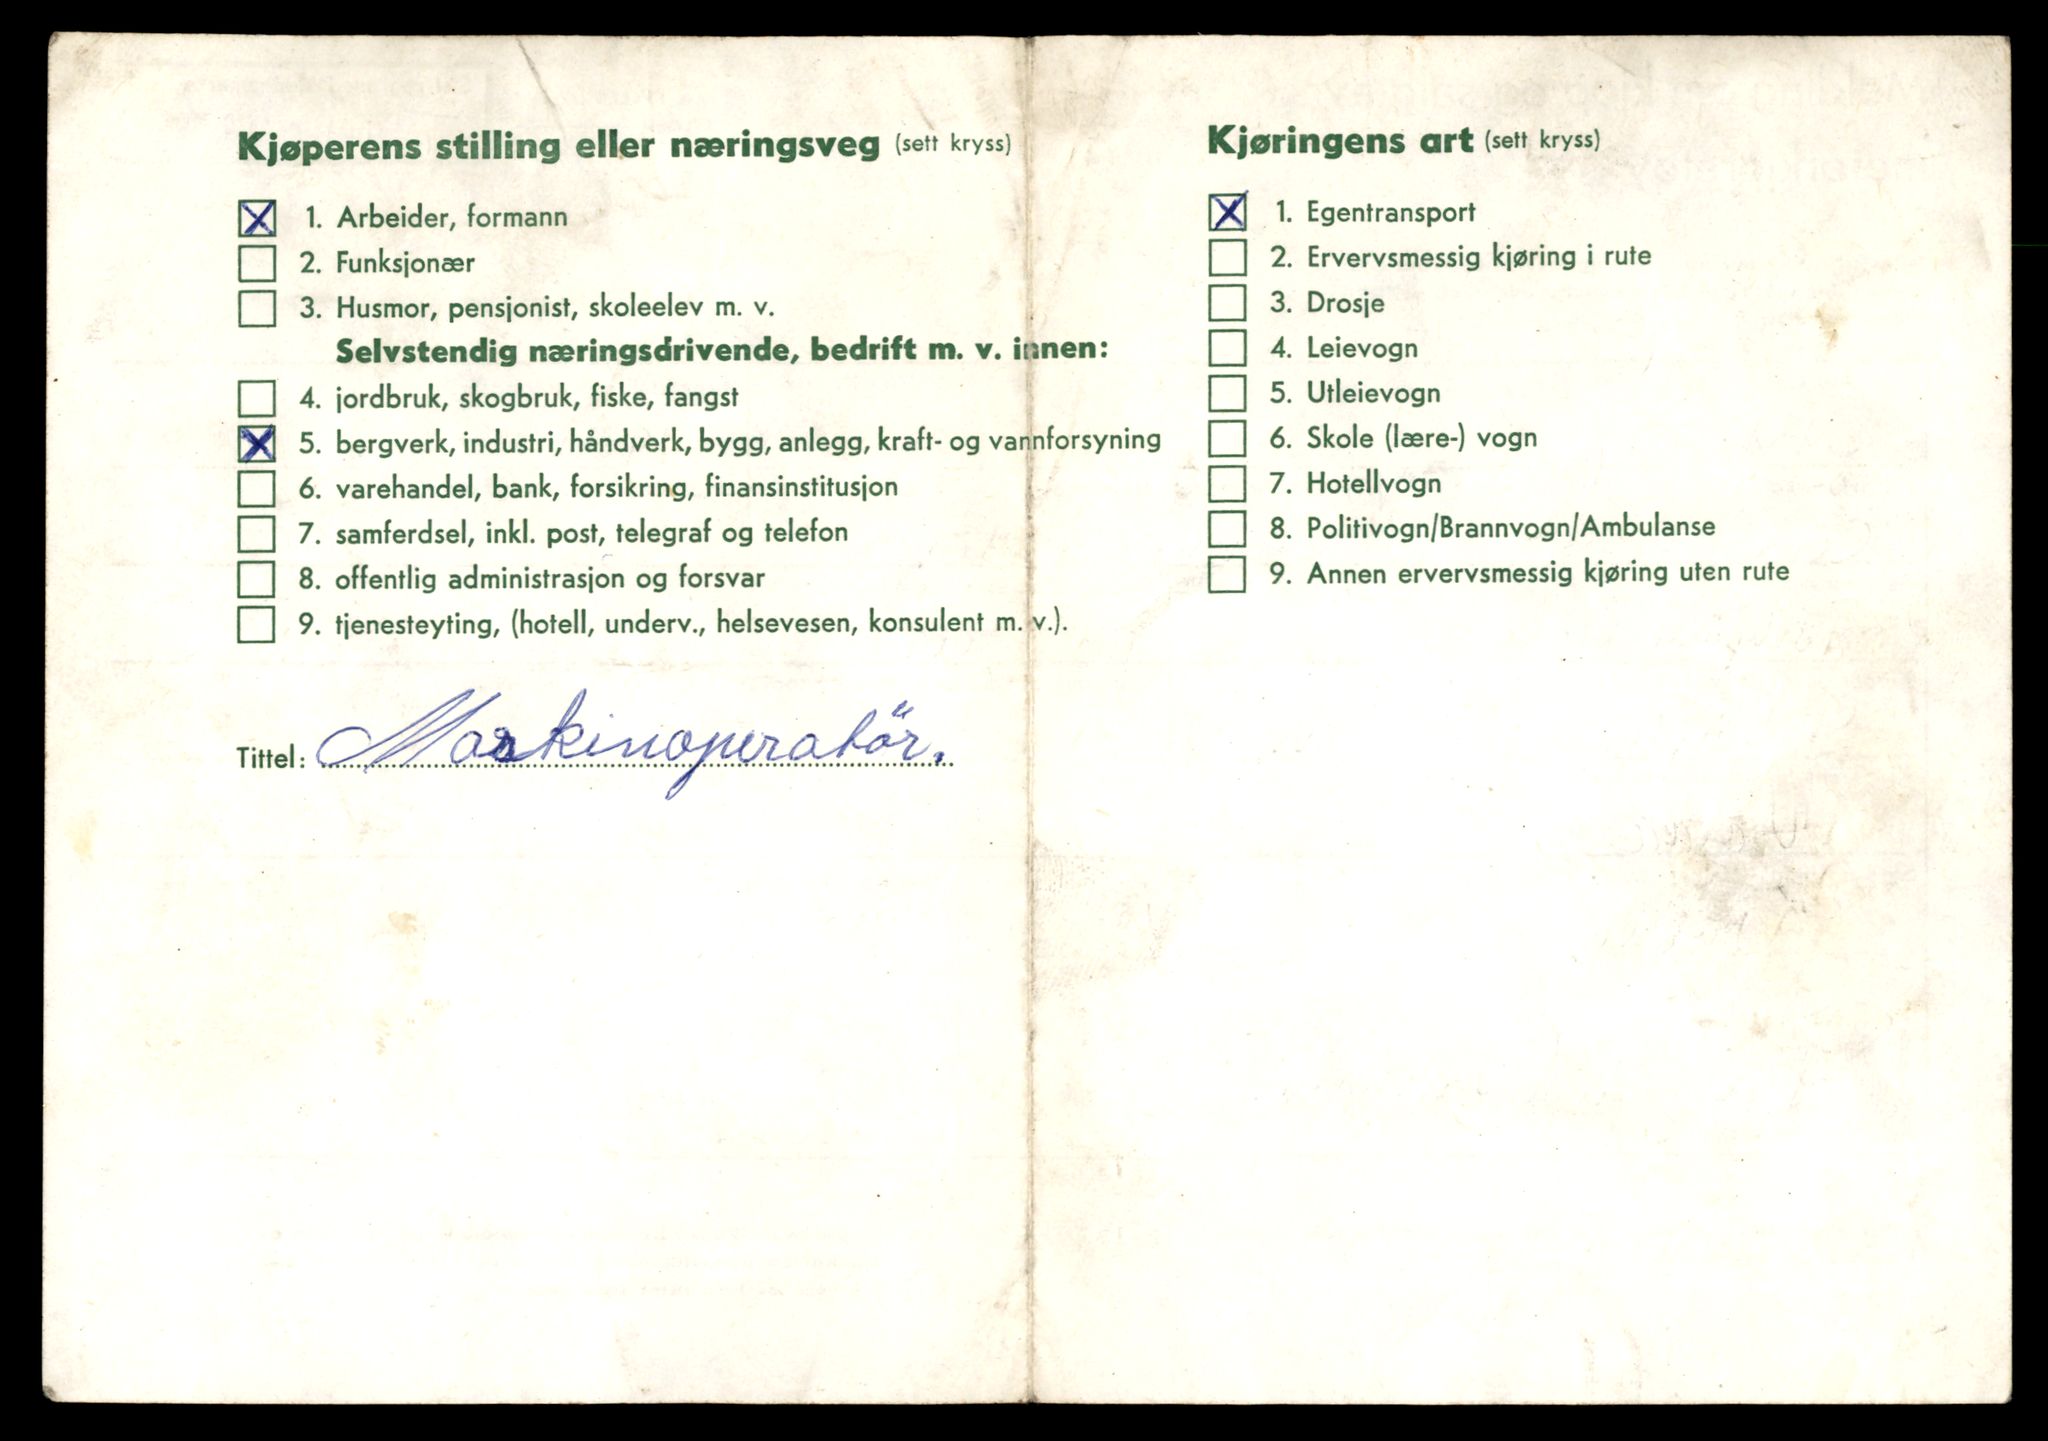 Kjøperens stilling eller næringsveg (sett kryss)
1. Arbeider, formann
2. Funksjonær
3. Husmor, pensjonist, skoleelev m. v.
Selvstendig næringsdrivende, bedrift m. v. innen:
4. jordbruk, skogbruk, fiske, fangst
5. bergverk, industri, håndverk, bygg, anlegg, kraft- og vannforsyning
6. varehandel, bank, forsikring, finansinstitusjon
7. samferdsel, inkl. post, telegraf og telefon
8. offentlig administrasjon og forsvar
9. tjenesteyting, (hotell, underv., helsevesen, konsulent m. v.).
Tittel: Maskinoperatör.
Kjøringens art (sett kryss)
1. Egentransport
2. Ervervsmessig kjøring i rute
3. Drosje
4. Leievogn
5. Utleievogn
6. Skole (lære-) vogn
7. Hotellvogn
8. Politivogn/Brannvogn/Ambulanse
9. Annen ervervsmessig kjøring uten rute